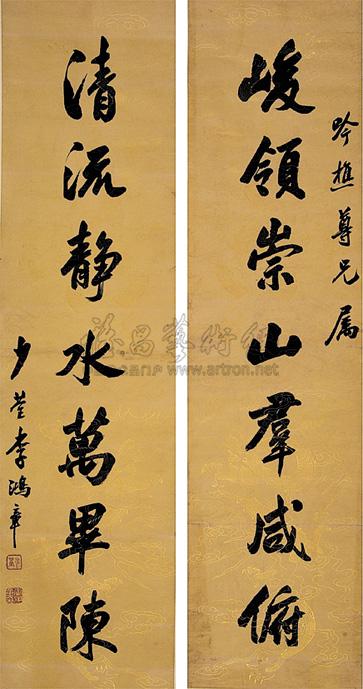 吟樵尊兄属
峻領崇山羣咸俯
清流静水萬畢陳
少荃李鴻章
雅昌藝術網
雅昌艺术门户 www.artron.net